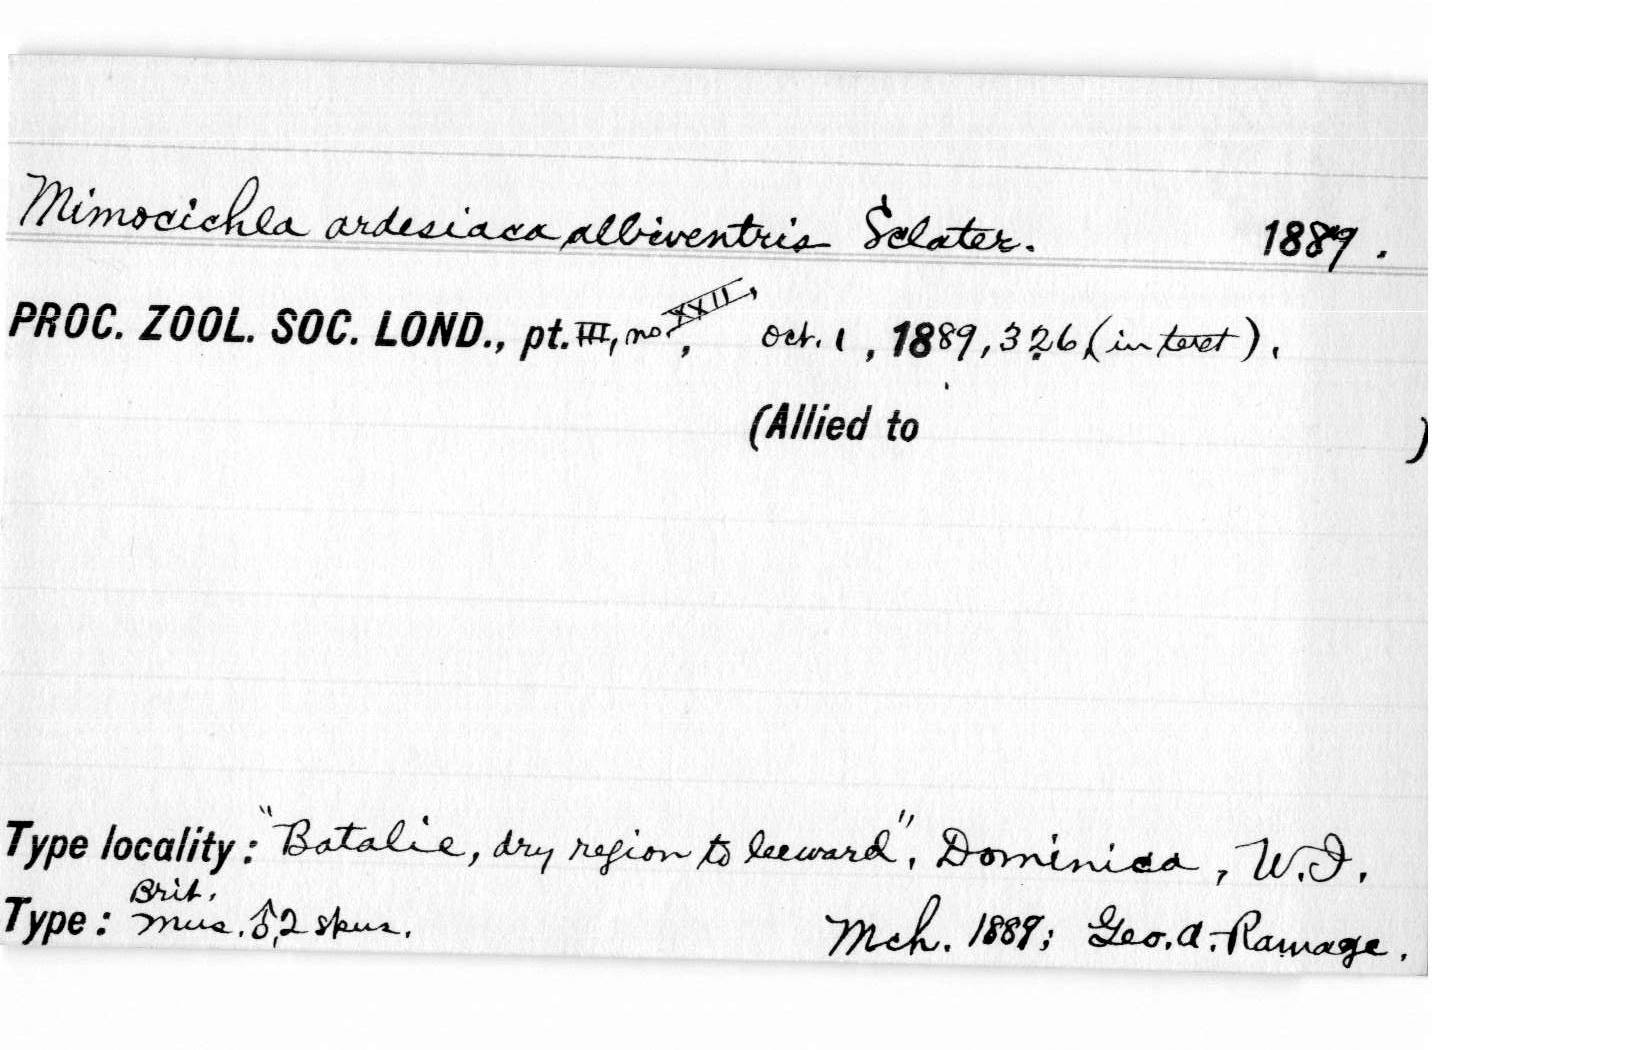 Mimocichla ardesiaca albiventris Sclater. 1889.
PROC. ZOOL. SOC. LOND., pt. III, no. XXII, Oct. 1, 1889, 326 (in text).
(Allied to )
Type locality: "Batalie, dry region to leeward", Dominica, W.I.
Type: Brit. Mus. ♂, 2 skns. Mch. 1889; Geo. A. Ramage.